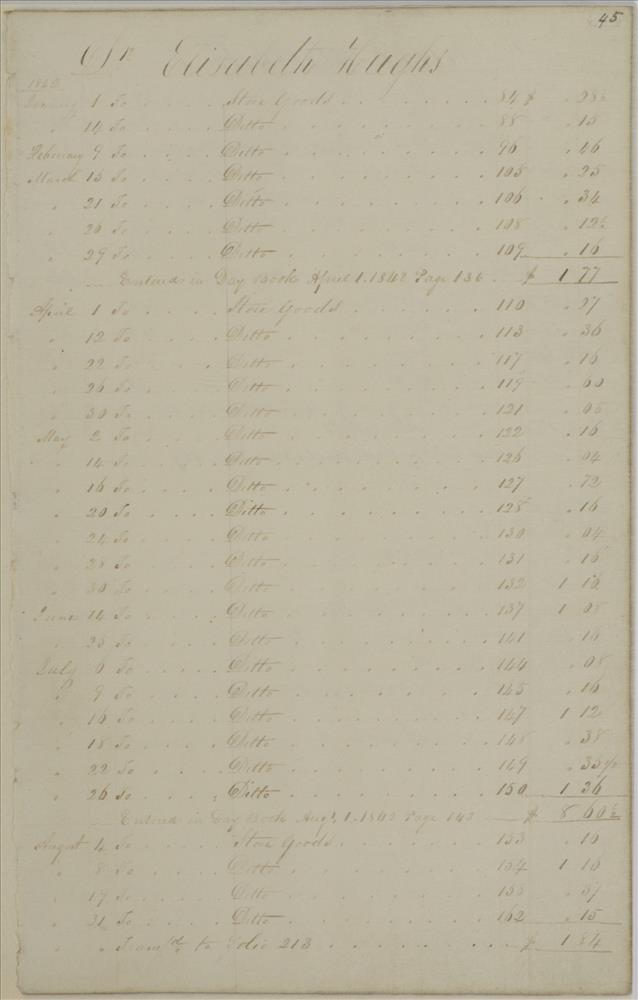 45
Dr Elisabeth Hughs
1842
January 1 To Store Goods 84 $ .28½
" 14 To Ditto 88 .15
February 9 To Ditto 96 .46
March 15 To Ditto 105 .25
" 21 To Ditto 106 .34
" 26 To Ditto 108 .12½
" 29 To Ditto 109 .16
Entered in Day Book April 1. 1842 Page 136 $ 1 77
April 1 To Store Goods 110 .27
" 12 To Ditto 113 .36
" 22 To Ditto 117 .16
" 26 To Ditto 119 .60
" 30 To Ditto 121 .08
May 2 To Ditto 122 .16
" 14 To Ditto 126 .04
" 16 To Ditto 127 .72
" 20 To Ditto 128 .16
" 24 To Ditto 130 .04
" 28 To Ditto 131 .16
" 30 To Ditto 132 1 16
June 14 To Ditto 137 1 08
" 25 To Ditto 141 .16
July 6 To Ditto 144 .08
" 9 To Ditto 145 .16
" 16 To Ditto 147 1 12
" 18 To Ditto 148 .38
" 22 To Ditto 149 .35½
" 26 To Ditto 150 1 36
Entered in Day Book Augt. 1. 1842 Page 143 $ 8 60½
August 4 To Store Goods 153 .16
" 8 To Ditto 154 1 16
" 19 To Ditto .37
" 31 To Ditto 162 .15
" " Transfd. to Folio 213 $ 1 84